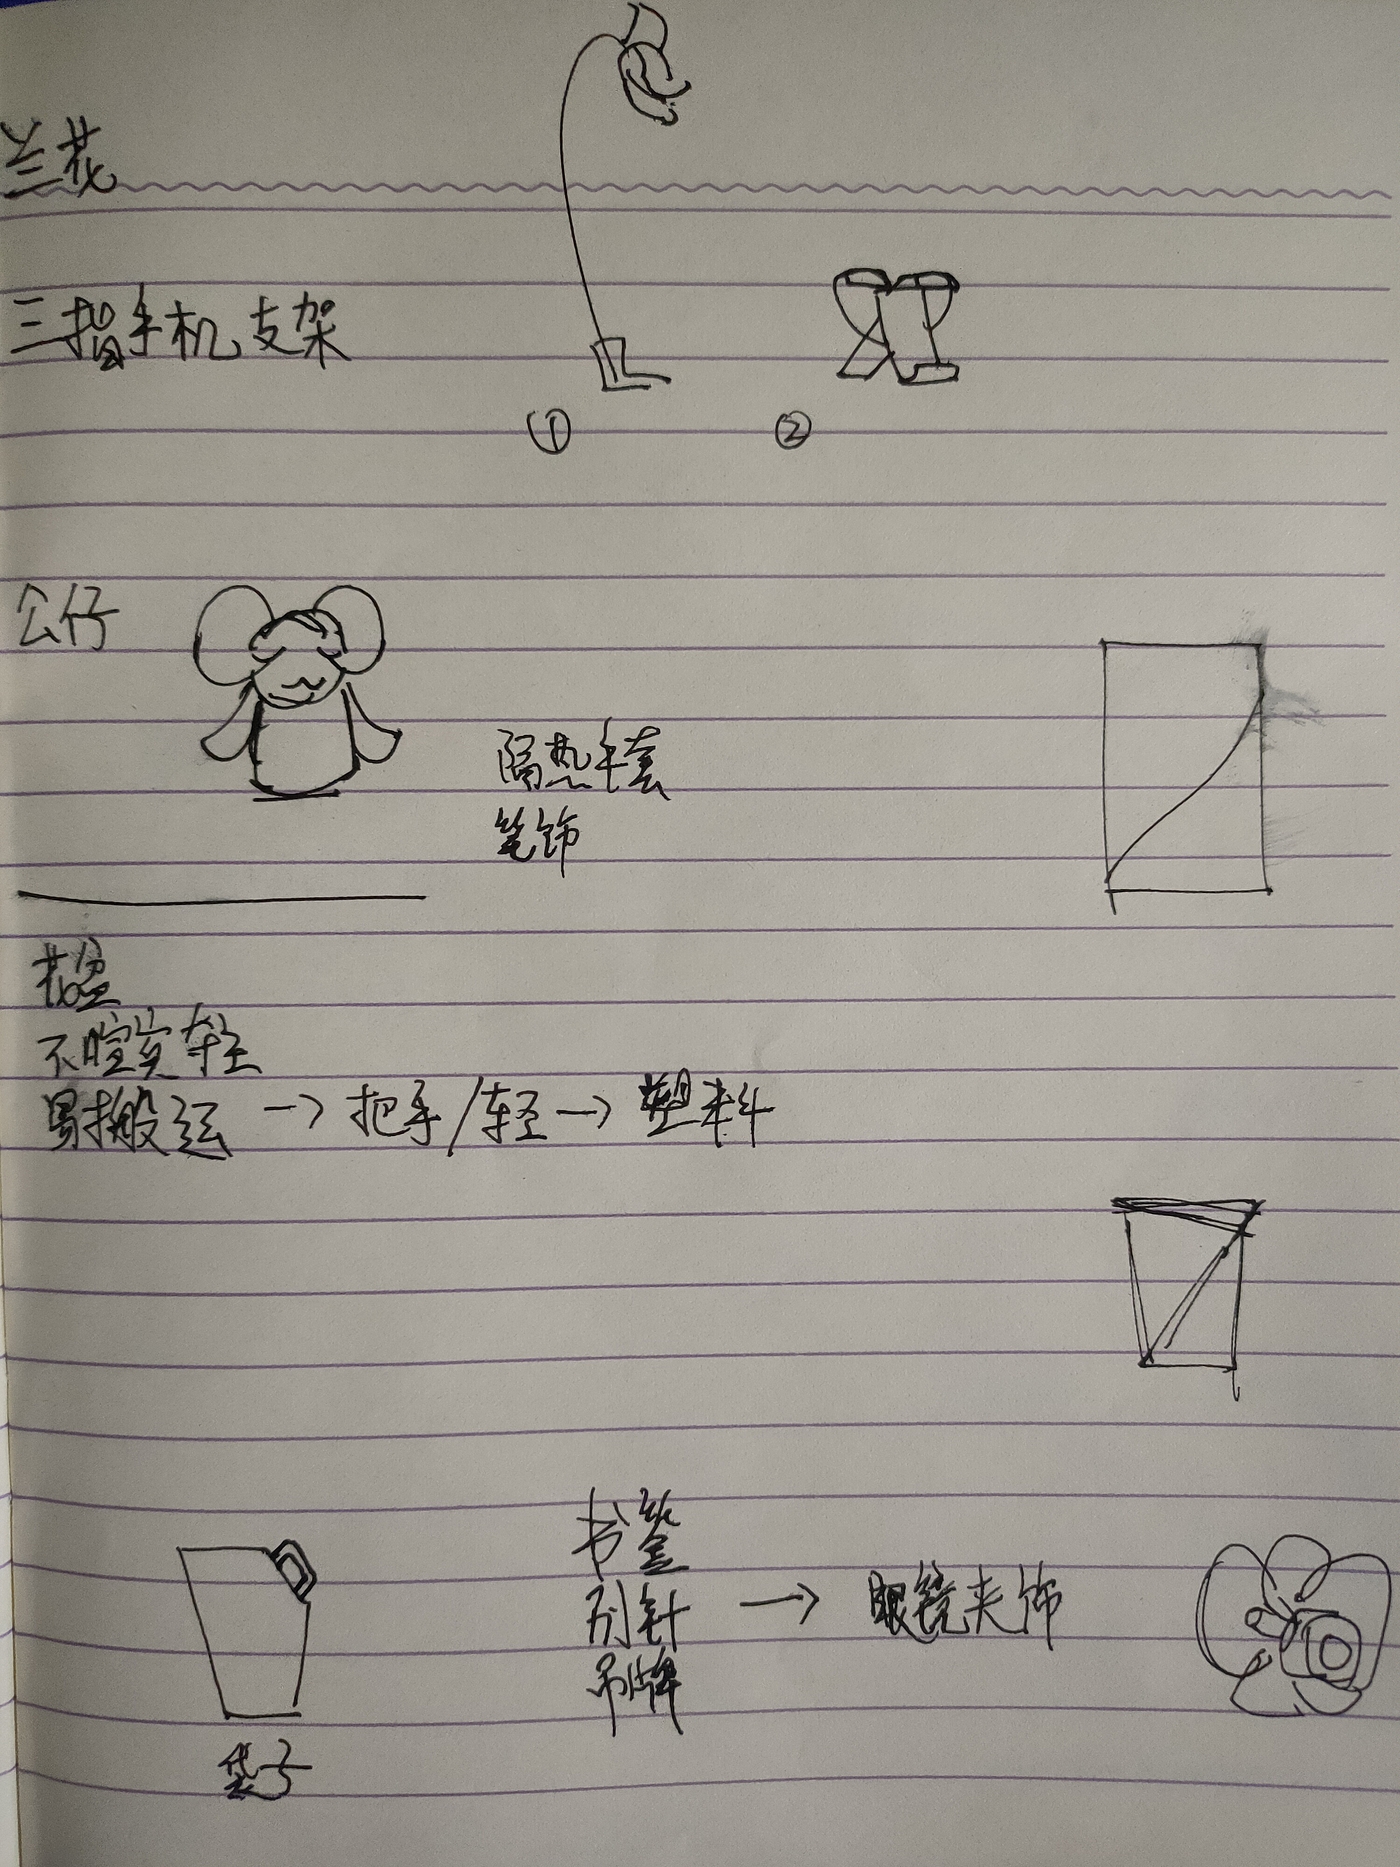 兰花
三指手机支架
① ②
公仔
隔热手套
笔饰
花盆
不喧宾夺主
易搬运 → 把手/轻 → 塑料
书签
别针 → 眼镜夹饰
吊牌
袋子